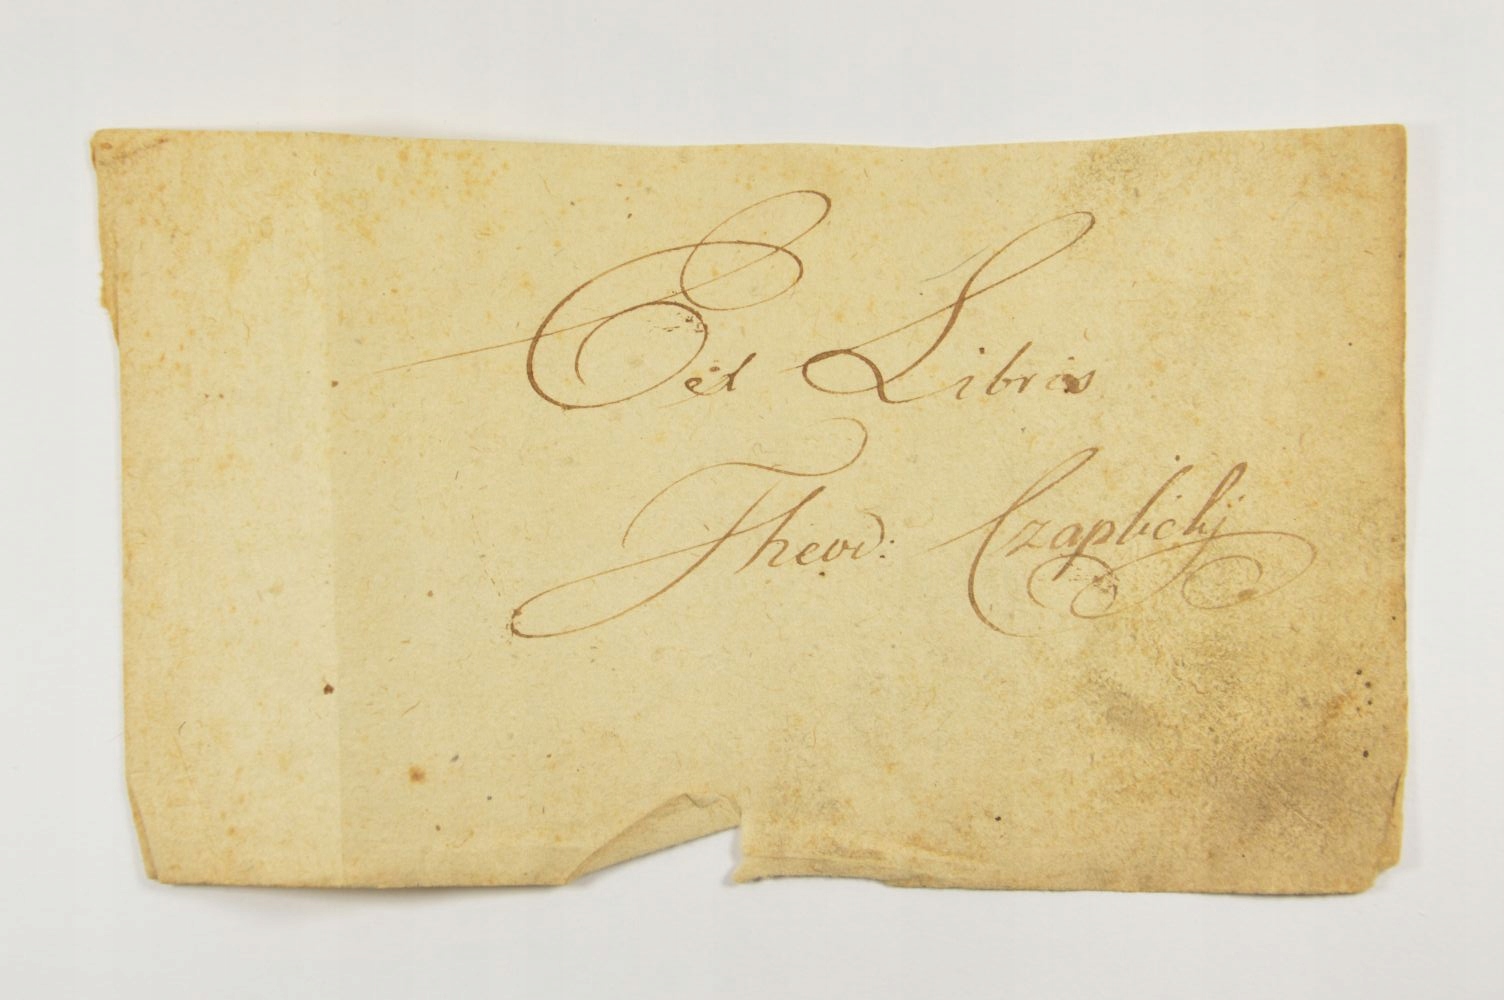 Ex Libris
Theod: Czaplickj